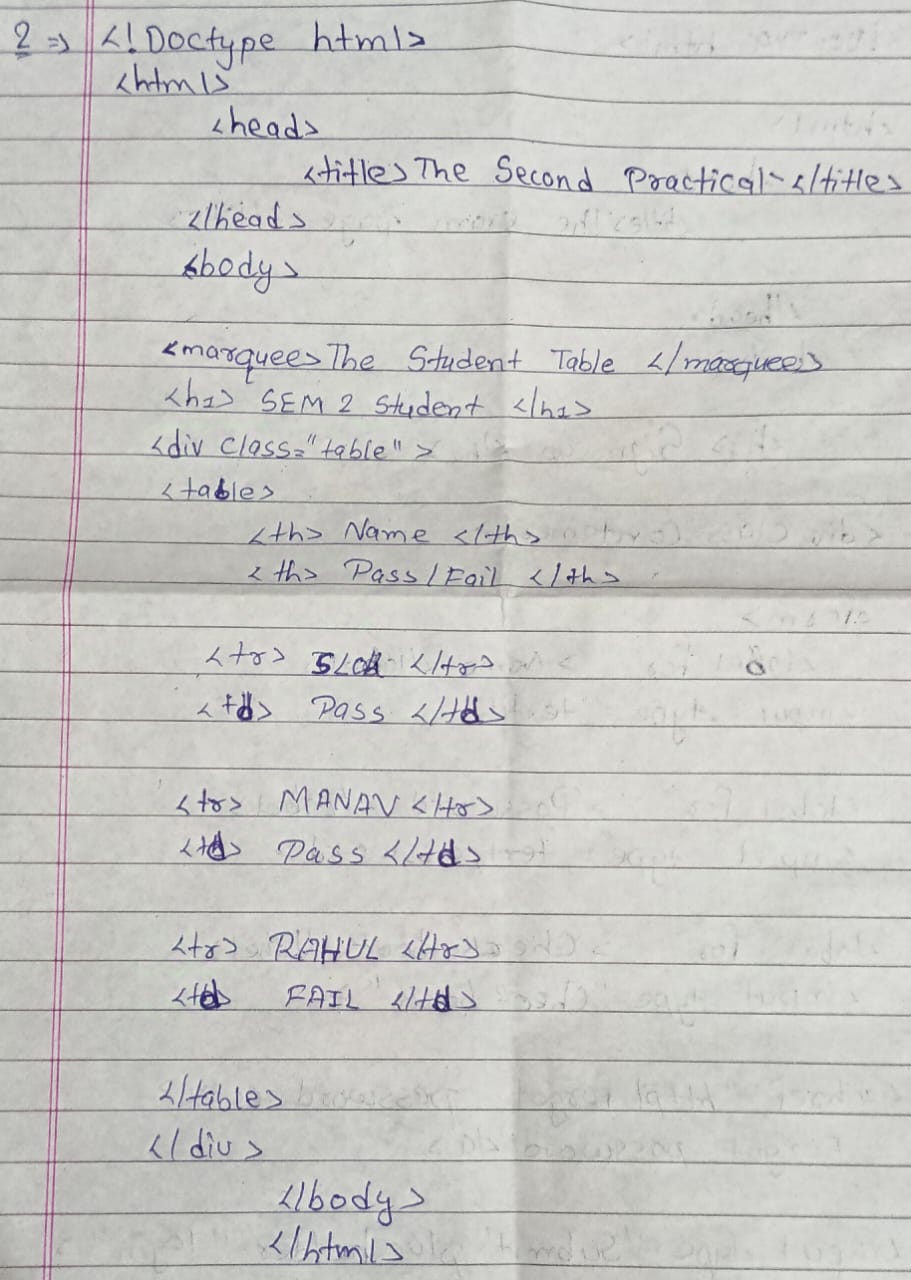 2 ⇒ <!Doctype html>
<html>
<head>
<title> The Second Practical </title>
</head>
<body>
<marquee> The Student Table </marquee>
<h1> SEM 2 Student </h1>
<div class="table">
<table>
<th> Name </th>
<th> Pass/Fail </th>
<tr> </tr>
<td> Pass </td>
<tr> MANAV </tr>
<td> Pass </td>
<tr> RAHUL </tr>
<td> FAIL </td>
</table>
</div>
</body>
</html>